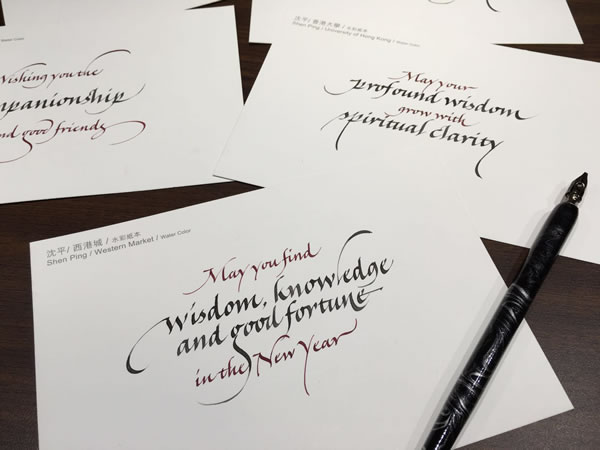 Water Color
Wishing you the
companionship
and good friends
沈平/ 香港大學 / 水彩紙本
Shen Ping / University of Hong Kong / Water Color
May your
profound wisdom
grow with
spiritual clarity
沈平/ 西港城 / 水彩紙本
Shen Ping / Western Market / Water Color
May you find
wisdom, knowledge
and good fortune
in the New Year